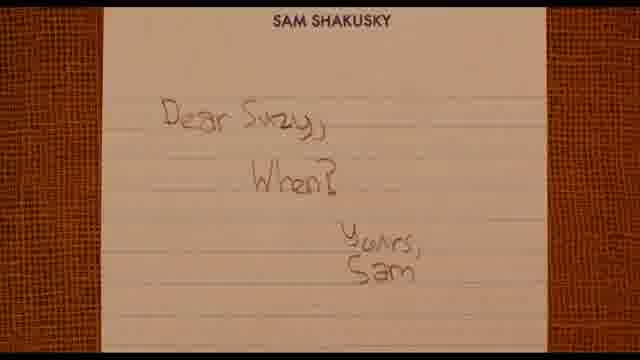 SAM SHAKUSKY
Dear Suzy,
When?
Yours,
Sam